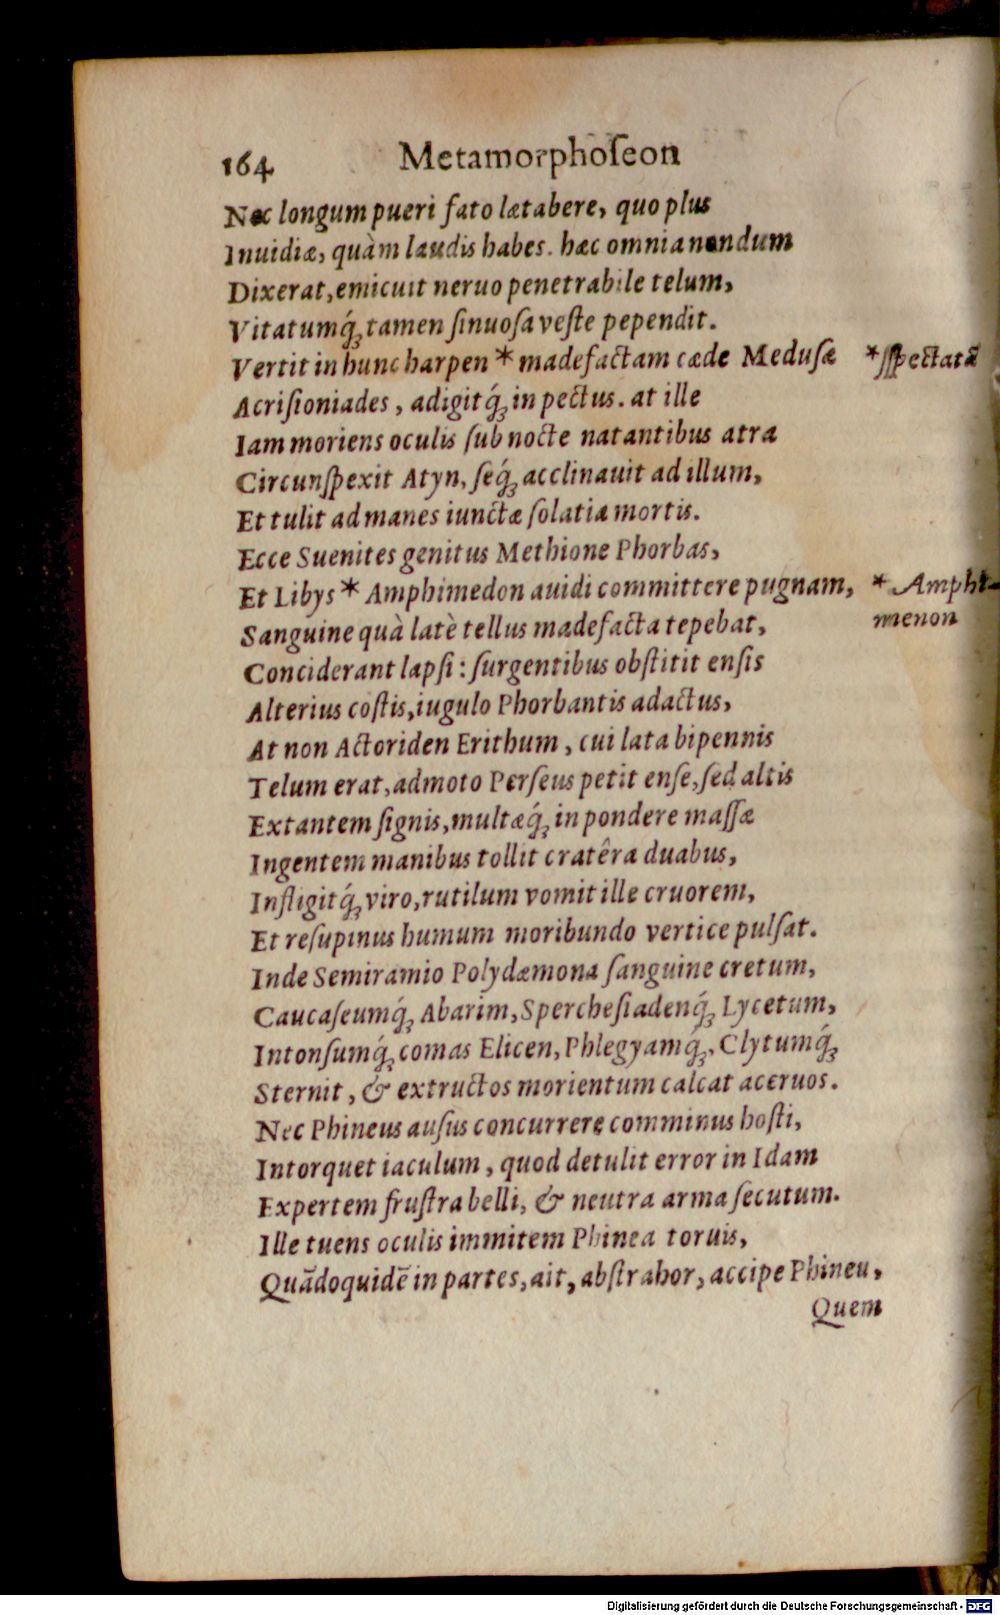 164 Metamorphoſeon
Nec longum pueri fato lætabere, quo plus
Inuidiæ, quàm laudis habes. hæc omnia nondum
Dixerat, emicuit neruo penetrabile telum,
Vitatumq́ꝫ tamen ſinuoſa veſte pependit.
Vertit in hunc harpen * madefactam cæde Meduſæ
* ſpectatã
Acriſioniades, adigitq́ꝫ in pectus. at ille
Iam moriens oculis ſub nocte natantibus atra
Circunſpexit Atyn, ſeq́ꝫ acclinauit ad illum,
Et tulit ad manes iunctæ ſolatia mortis.
Ecce Suenites genitus Methione Phorbas,
Et Libys * Amphimedon auidi committere pugnam,
* Amphi-
menon
Sanguine quà latè tellus madefacta tepebat,
Conciderant lapſi: ſurgentibus obſtitit enſis
Alterius coſtis, iugulo Phorbantis adactus,
At non Actoriden Erithum, cui lata bipennis
Telum erat, admoto Perſeus petit enſe, ſed altis
Extantem ſignis, multæq́ꝫ in pondere maſſæ
Ingentem manibus tollit cratêra duabus,
Infligitq́ꝫ viro, rutilum vomit ille cruorem,
Et reſupinus humum moribundo vertice pulſat.
Inde Semiramio Polydæmona ſanguine cretum,
Caucaſeumq́ꝫ Abarim, Spercheſiadenq́ꝫ Lycetum,
Intonſumq́ꝫ comas Elicen, Phlegyamq́ꝫ, Clytumq́ꝫ
Sternit, & extructos morientum calcat aceruos.
Nec Phineus auſus concurrere comminus hoſti,
Intorquet iaculum, quod detulit error in Idam
Expertem fruſtra belli, & neutra arma ſecutum.
Ille tuens oculis immitem Phinea toruis,
Quãdoquidẽ in partes, ait, abſtrahor, accipe Phineu,
Quem
Digitalisierung gefördert durch die Deutsche Forschungsgemeinschaft - DFG